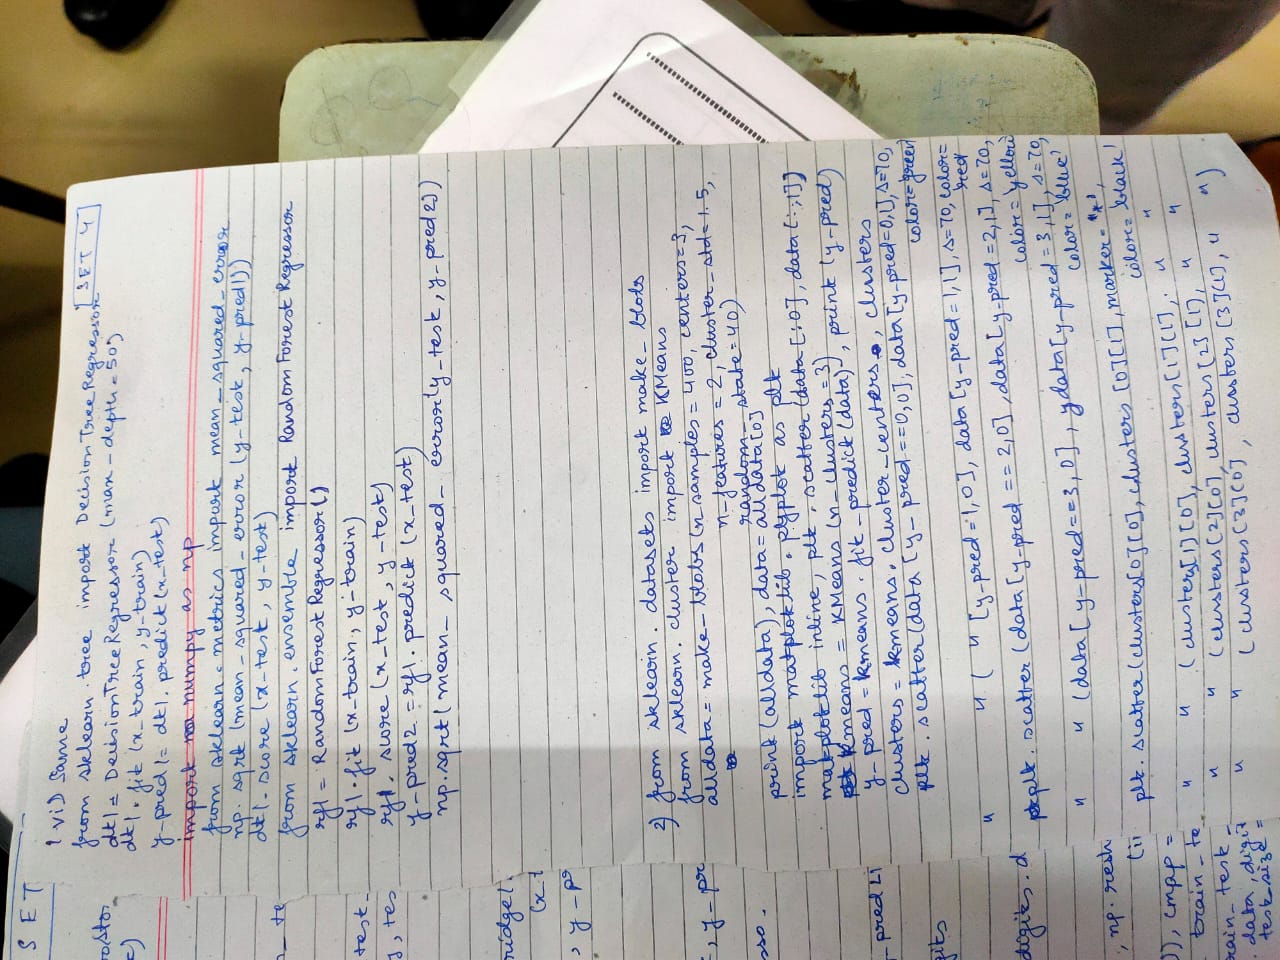 SET
1 vi) Same
SET 4
from sklearn.tree import DecisionTreeRegressor
dt1 = DecisionTreeRegressor (max-depth=50)
dt1.fit (x-train, y-train)
y-pred1= dt1. predict (x-test)
import numpy as np
from sklearn.metrics import mean_squared_error
np. sqrt (mean-squared-error (y-test, y-pred1))
dt1.score (x-test, y-test)
from sklearn.ensemble import RandomForestRegressor
rf1 = RandomForestRegressor()
rf1.fit (x-train, y-train)
rf1. score (x-test, y-test)
y-pred2 = rf1. predict (x_test)
np.sqrt(mean_ squared_ error(y_test, y-pred2))
2) from sklearn. datasets import make_ blobs
from sklearn. cluster import KMeans
alldata = make-blobs (n samples = 400, centers=3,
n-features = 2, cluster_std= 1.5,
random_state=40)
print (alldata), data= alldata[0]
import matplotlib. pyplot as plt
matplotlib inline, plt. scatter (data [:0], data [:,1])
Kmeans = KMeans (n-clusters=3)
y-pred = kmeans. fit-predict (data), print (y-pred)
clusters = kmeans. cluster-centers, clusters
plt. scatter(data [y-pred==0,0], data[y-pred=0,1], s=70,
color='green'
" " ( " [y-pred=1,0], data [y-pred=1,1], s=70, color=
red
plt. scatter (data [y-pred == 2,0], data [y-pred=2,1], s=70,
color= 'yellow'
" " (data [y-pred==3,0], ydata[y-pred=3,1], s=70,
color= 'blue'
plt. scatter(clusters[0][0], clusters [0][1], marker= "*",
color= 'black'
" " (clusters[1][0], clusters[1][1], " "
" " (clusters[2][0], clusters [2][1], " "
" " (clusters[3][0], clusters [3][1], " ")
n_ te
test_
y, tes
ridge1.
(x t
, y-pr
, y-pr
sso.
_ pred L1
gits
digits. d
, np. resh
)), cmap =
train-te
rain_ test_
. data, digit
test size =